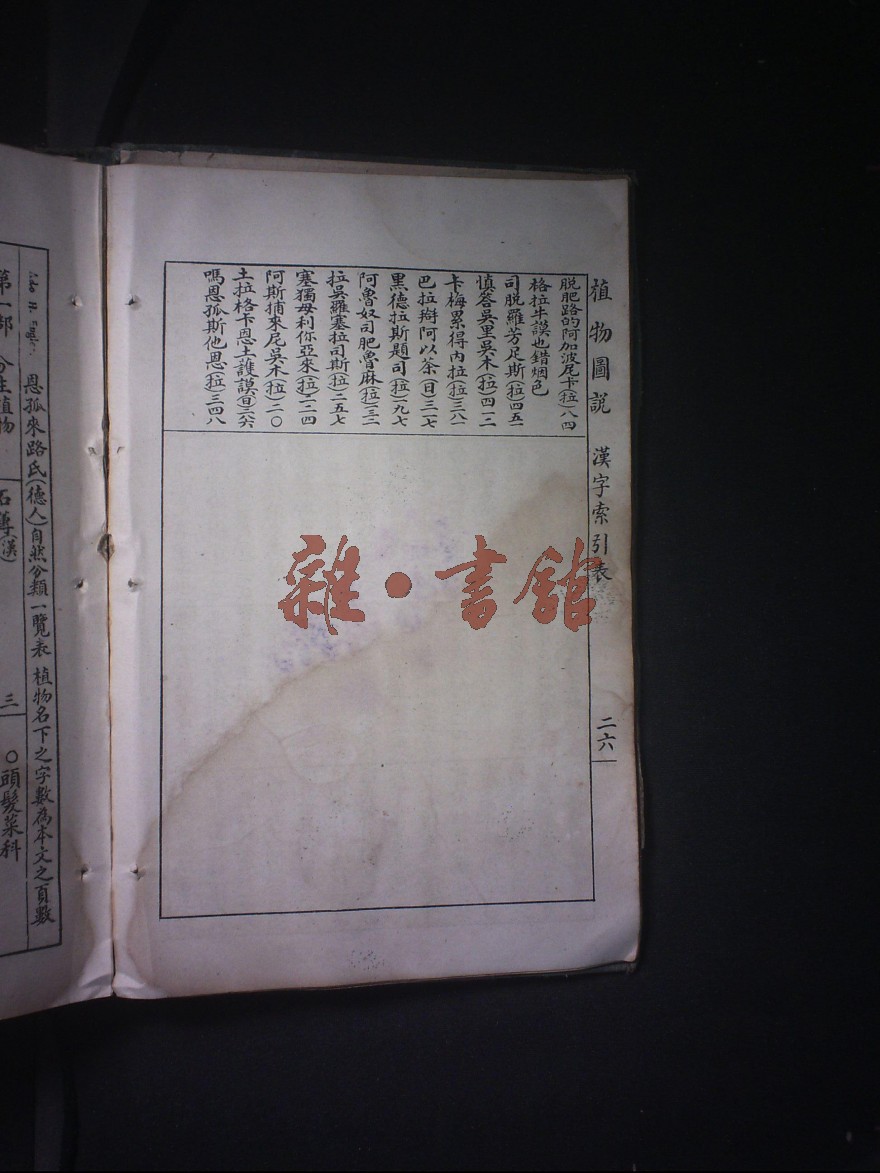 植物圖説 漢字索引表 二六
脱肥路的阿加波尼卡(拉)八四
格拉牛謨也錯烟色
司脱羅芳足斯(拉)四五一
慎答吳里吳木(拉)四一二
卡梅累得內拉(拉)三八一
巴拉辯阿以茶(日)三一七
黑德拉斯題司(拉)一九七
阿魯奴司肥魯麻(拉)三二
拉吳羅塞拉司斯(拉)二五七
塞獨毋利你亞來(拉)二二四
阿斯捕來尼吳木(拉)二〇
土拉格卡恩土護謨(日)二六六
嗎恩孤斯他恩(拉)三四八
雜·書館
恩孤來路氏(德人)自然分類一覽表 植物名下之字數為本文之頁數
第一部 分生植物
三
〇頭髮菜科